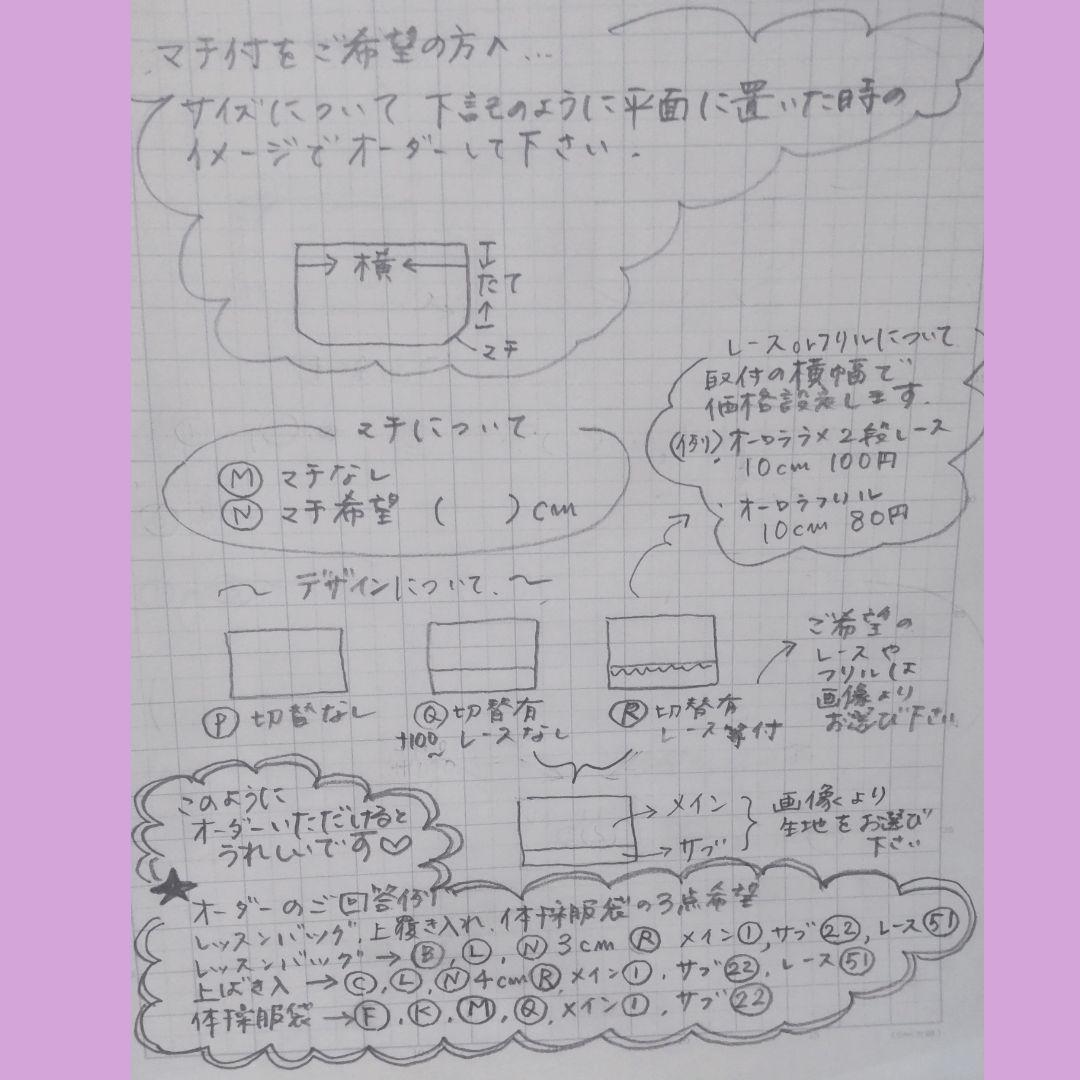 マチ付をご希望の方へ...
サイズについて 下記のように平面に置いた時の
イメージでオーダーして下さい.
横
たて
マチ
レースorフリルについて
取付の横幅で
価格設定します.
(例) オーロララメ2段レース
10cm 100円
・オーロラフリル
10cm 80円
マチについて
Ⓜ マチなし
Ⓝ マチ希望 (　　)cm
〜 デザインについて. 〜
Ⓟ 切替なし
Ⓠ 切替有
+100〜 レースなし
Ⓡ 切替有
レース等付
ご希望の
レースや
フリルは
画像より
お選び下さい
メイン
サブ
画像より
生地をお選び
下さい
このように
オーダーいただけると
うれしいです♡
★
オーダーのご回答例
レッスンバッグ,上履き入れ,体操服袋の3点希望
レッスンバッグ→Ⓑ, Ⓛ, Ⓝ 3cm Ⓡ メイン①, サブ㉒, レース㊿①
上ばき入 →Ⓒ, Ⓛ, Ⓝ 4cm Ⓡ, メイン①, サブ㉒, レース㊿①
体操服袋 →Ⓕ, Ⓚ, Ⓜ, Ⓠ, メイン①, サブ㉒